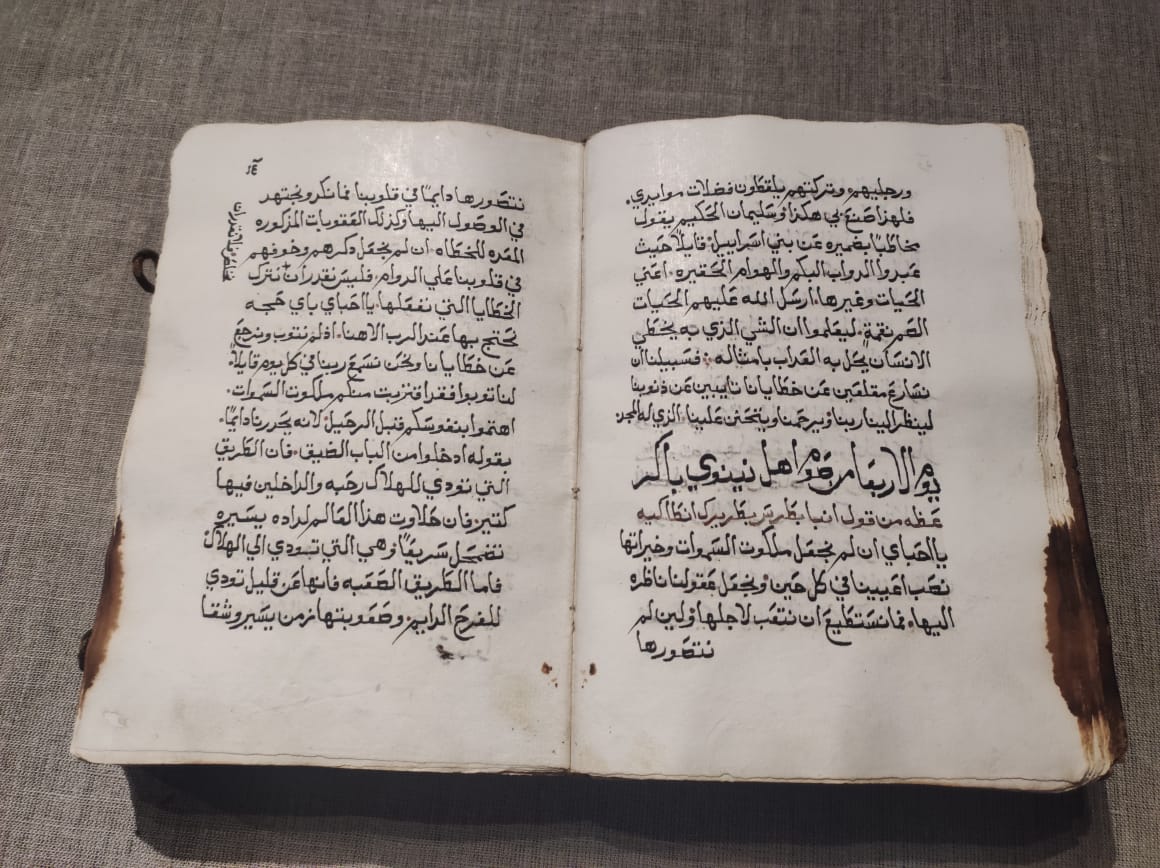 ورجليهم وتركتهم يلقطون فضلات موايدي.
فلهذا صنع بي هكذا وسليمان الحكيم يقول
مخاطبا بضميره عن بني اسراييل قايلا حيث
عبدوا الدواب البكم والهوام الحقيره اعني
الحيات وغيرها ارسل الله عليهم الحيات
الصم نقمة ليعلموا ان الشي الذي به يخطي
الانسان يحل به العداب بامثاله فسبيلنا ان
نسارع مقلعين عن خطايانا تايبين عن ذنوبنا
لينظر الينا ربنا ويرحمنا ويتحنن علينا الذي له المجد
يوم الاربعا من صوم اهل نينوي باكر
عظه من قول انبا بطرس بطريرك انطاكيه
يا احباي ان لم نجعل ملكوت السموات وخيراتها
نصب اعيينا في كل حين ونجعل عقولنا ناظره
اليها فما نستطيع ان نتعب لاجلها ولين لم
نتصورها
١٤
نتصورها دايما في قلوبنا فما نكر ونجتهد
في الوصول اليها وكذلك العقوبات المذكوره
المعده للخطاه ان لم نجعل ذكرهم وخوفهم
في قلوبنا علي الدوام فليس نقدر ان نترك
الخطايا التي نفعلها يا احباي باي حجه
نحتج بها عند الرب الاهنا اذ لم نتوب ونرجع
عن خطايانا ونحن نسمع ربنا في كل يوم قايلا
لنا توبوا فقد اقتربت منكم ملكوت السموات
اهتموا بنفوسكم قبل الرحيل لانه يحدرنا دايما
بقوله ادخلوا من الباب الضيق فان الطريق
التي تودي للهلاك رحبه والداخلين فيها
كتيرز فان حلاوت هذا العالم لداده يسيره
تضمحل سريعا وهي التي تبودي الي الهلاك
فاما الطريق الصعبه فانها عن قليل تودي
للفرح الدايم وصعوبتها زمن يسير وشقا